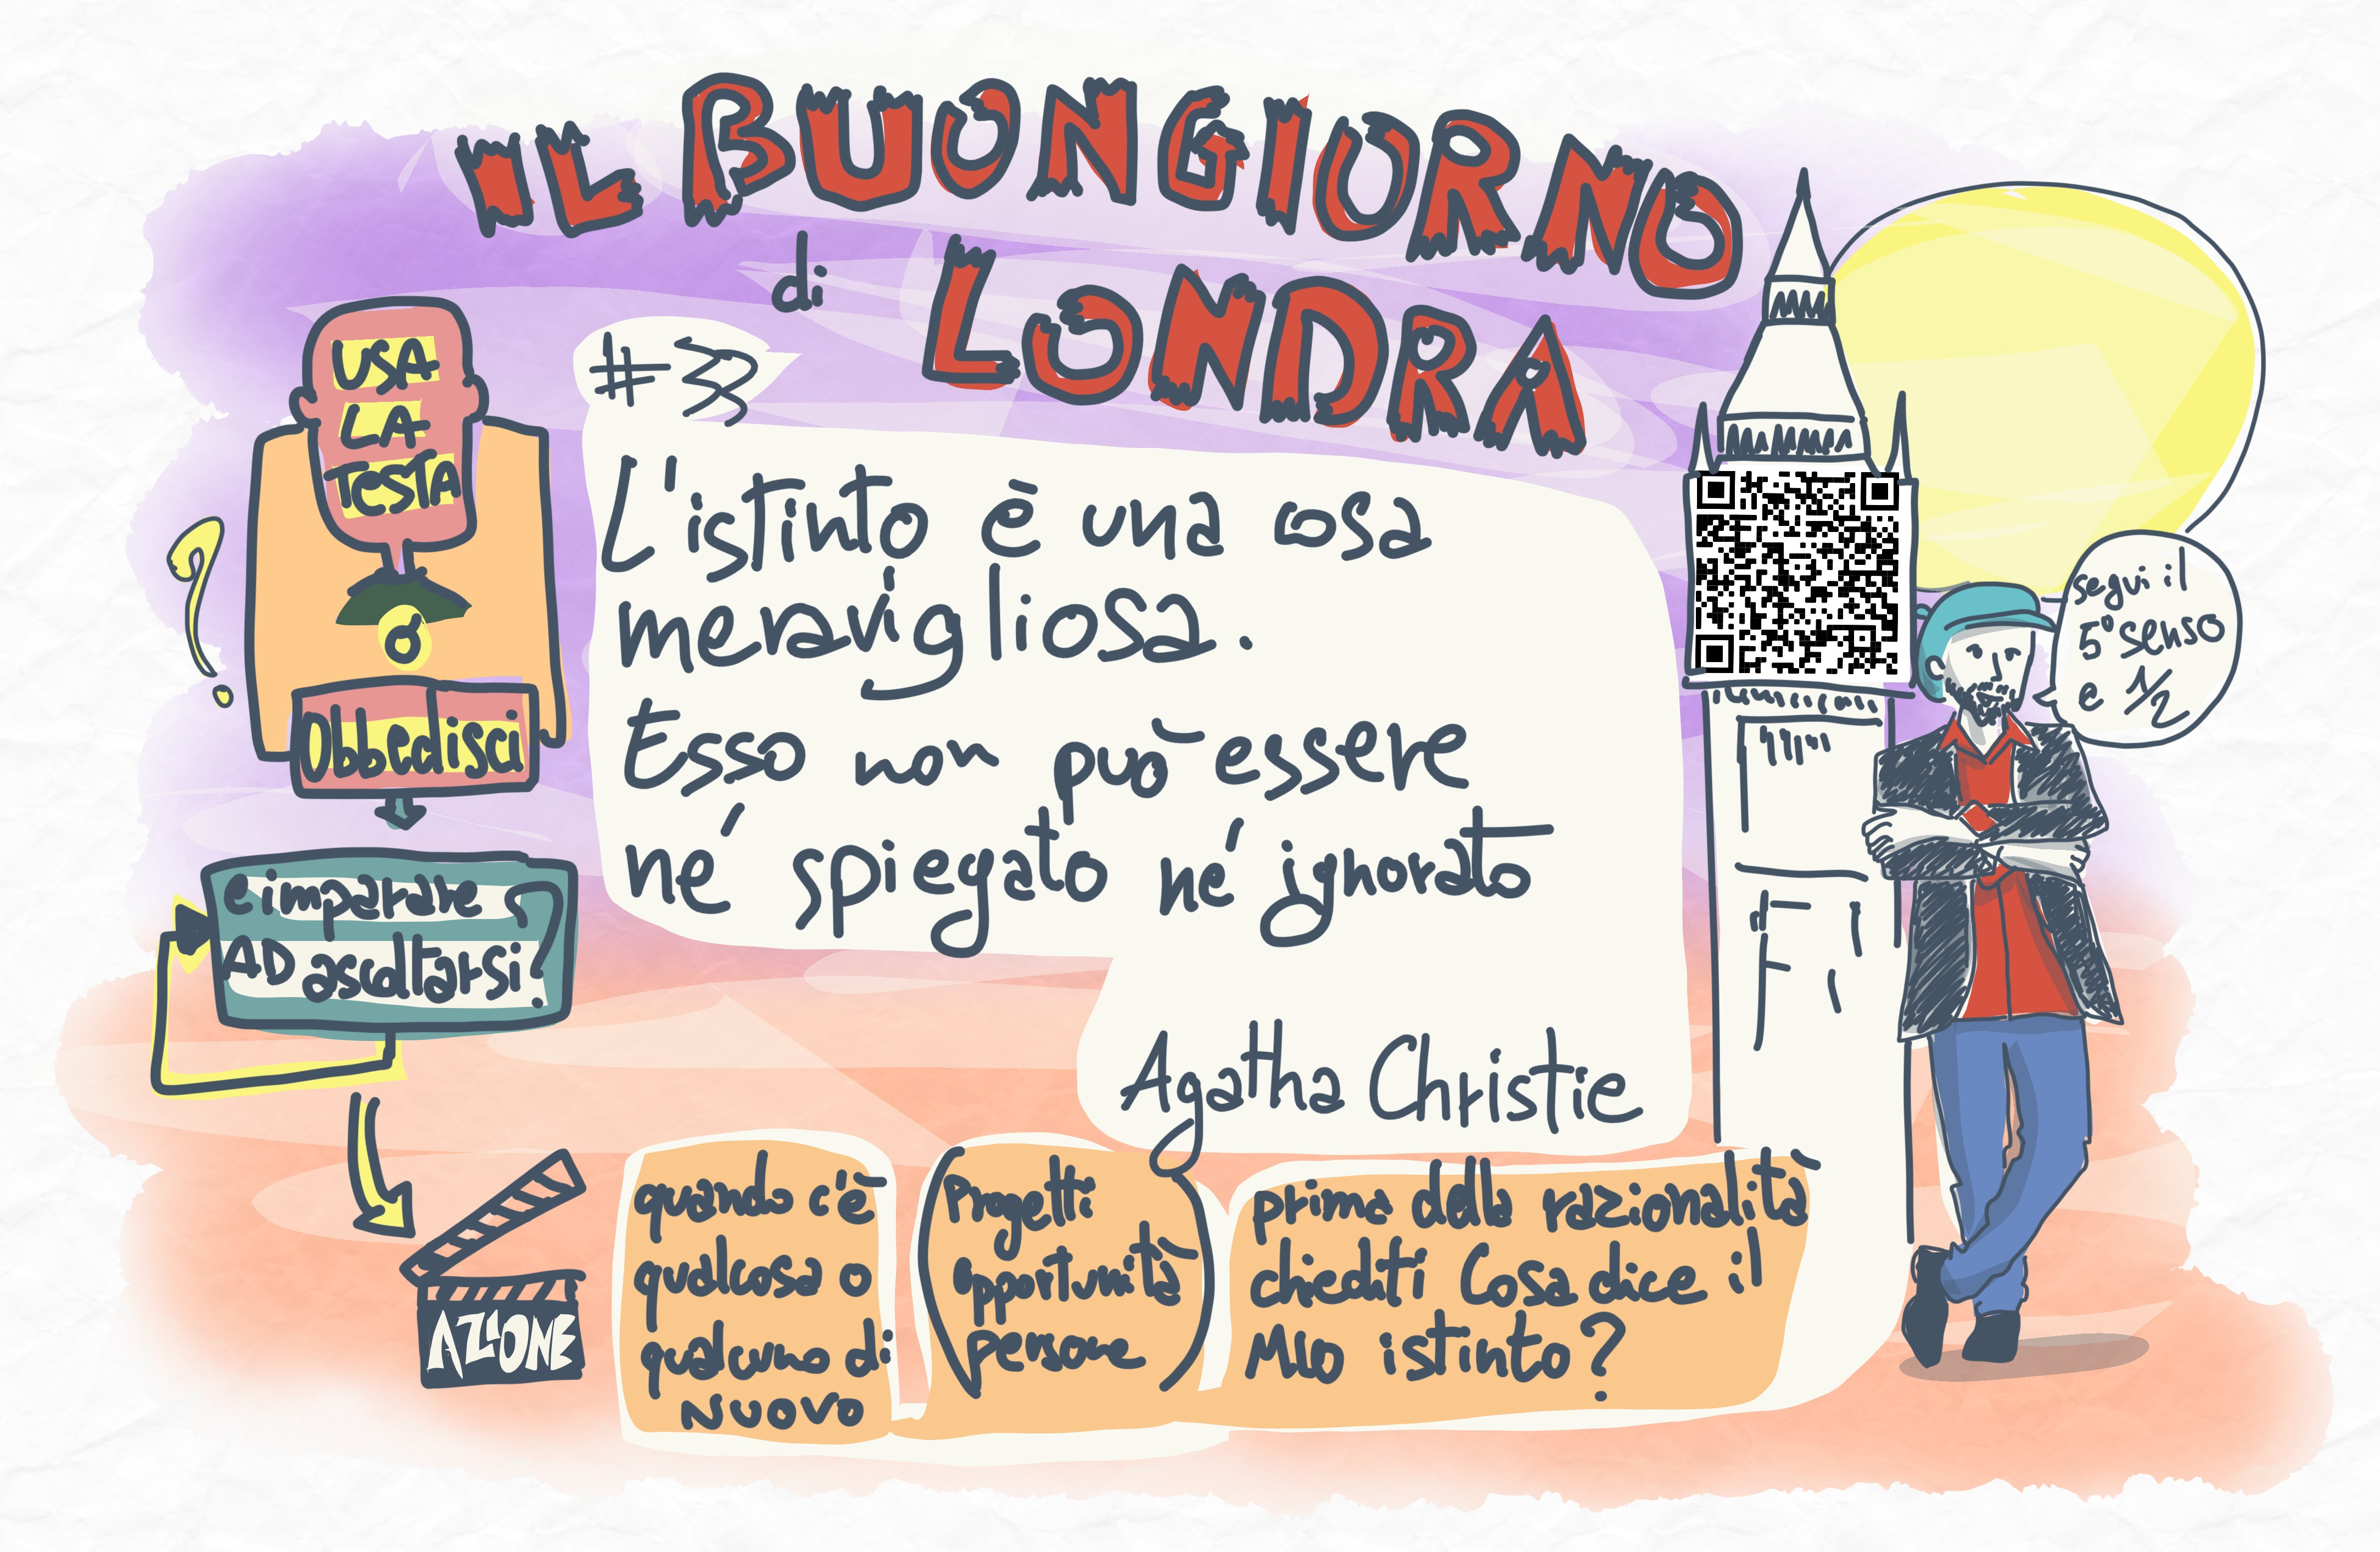 IL BUONGIORNO
di LONDRA
#33
L'istinto è una cosa
meravigliosa.
Esso non può essere
né spiegato né ignorato
Agatha Christie
USA
LA
TESTA
O
Obbedisci
?
e imparare
AD ascoltarsi?
AZIONE
quando c'è
qualcosa o
qualcuno di
NUOVO
(Progetti
opportunità
persone)
prima della razionalità
chiediti Cosa dice il
MIO istinto?
segui il
5° senso
e 1/2